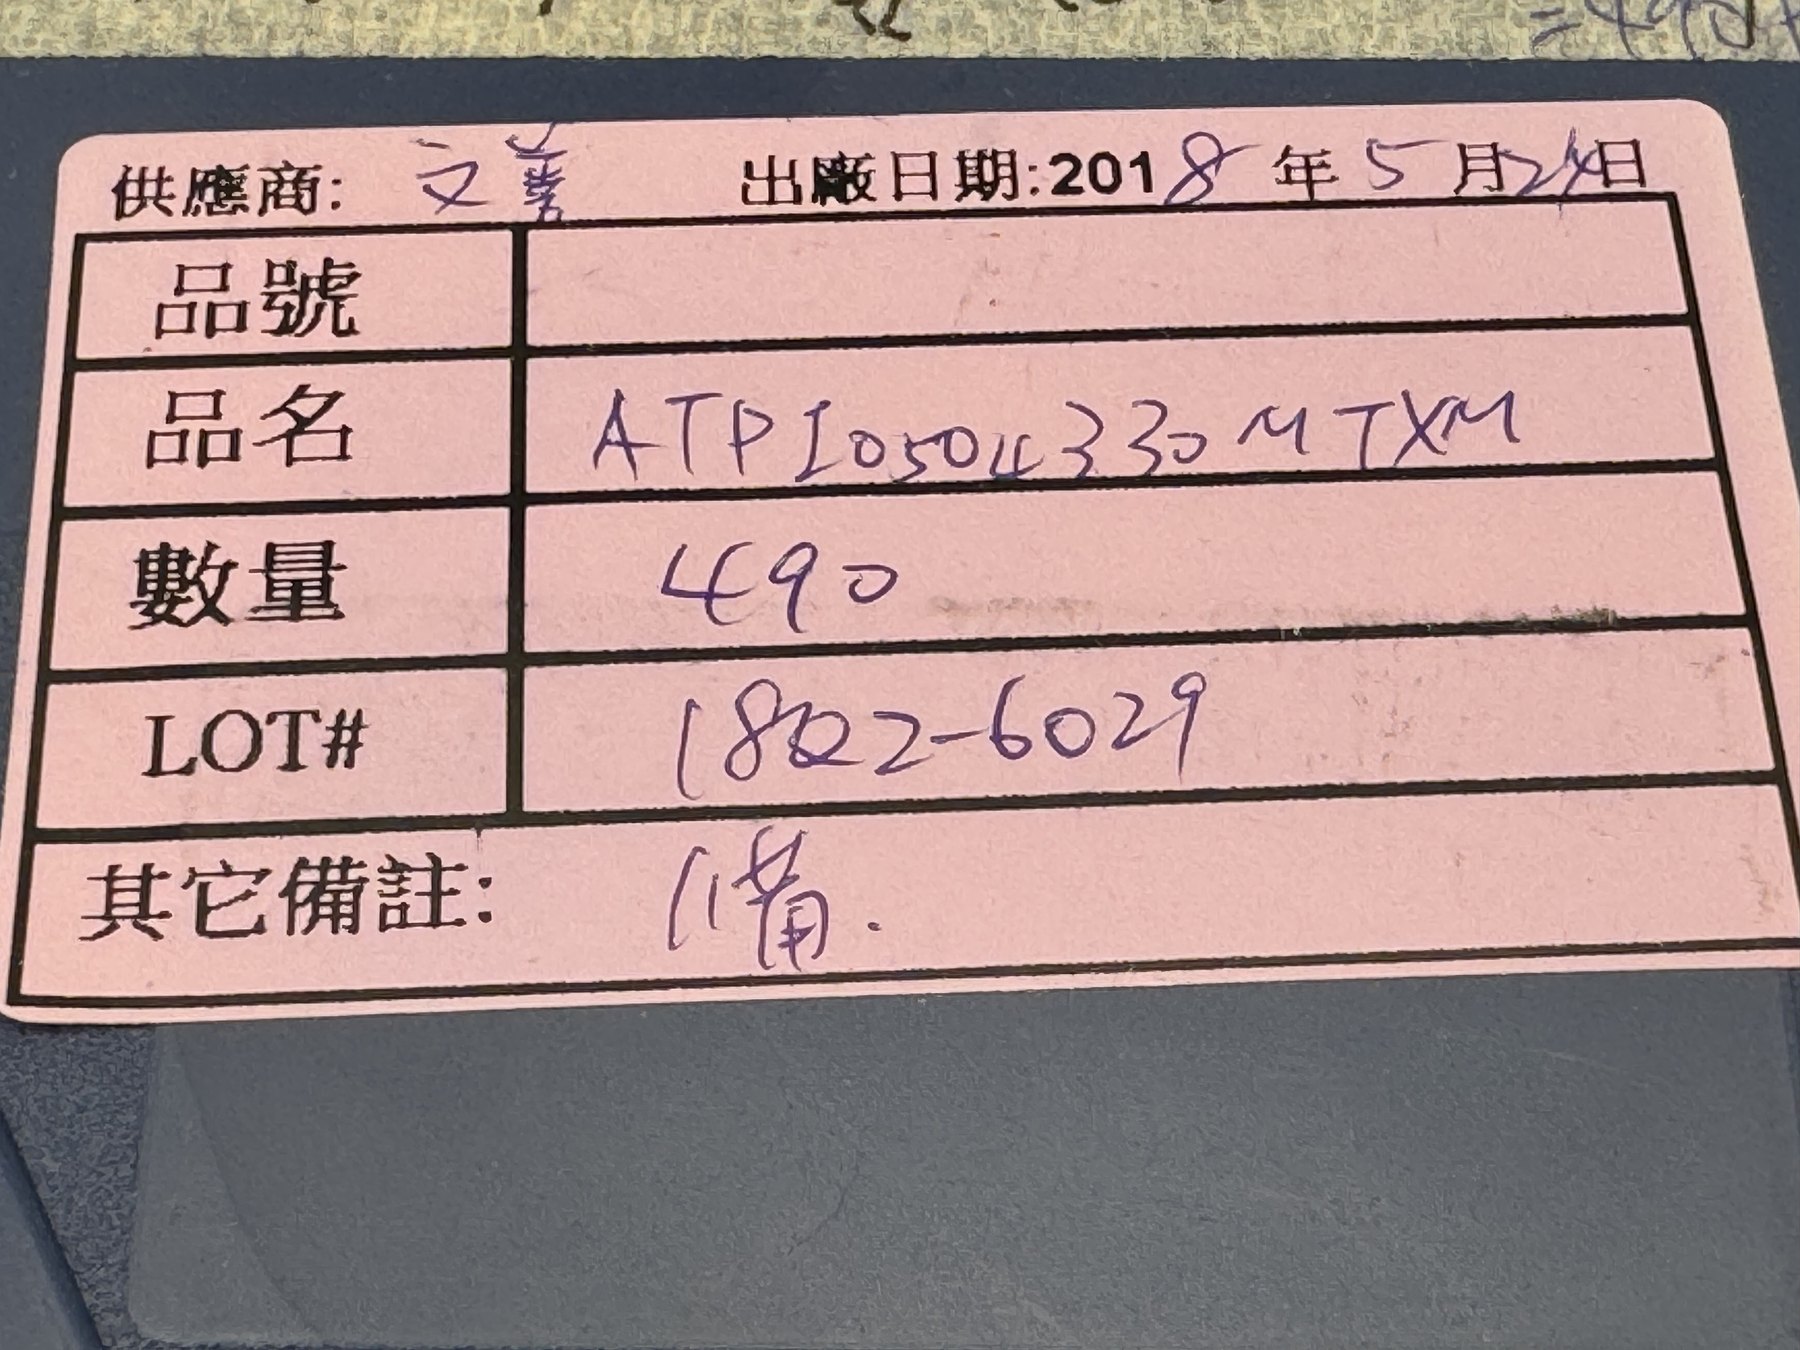 供應商: 文善 出廠日期:2018年5月24日
品號
品名 ATPI0504330MTXM
數量 490
LOT# 1822-6029
其它備註: 備.